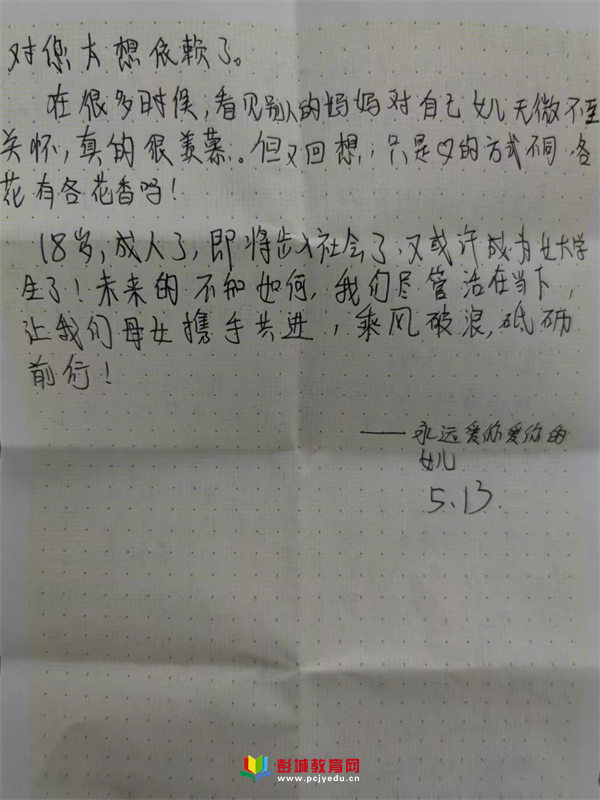 对您太想依赖了。
在很多时候，看见别人的妈妈对自己女儿无微不至
关怀，真的很羡慕。但又回想，只是♡的方式不同，各
花有各花香吗！
18岁，成人了，即将步入社会了，又或许成为女大学
生了！未来的不知如何，我们尽管活在当下，
让我们母女携手共进，乘风破浪，砥砺
前行！
——永远爱你爱你的
女儿
5.13.
彭城教育网
www.pcjyedu.cn